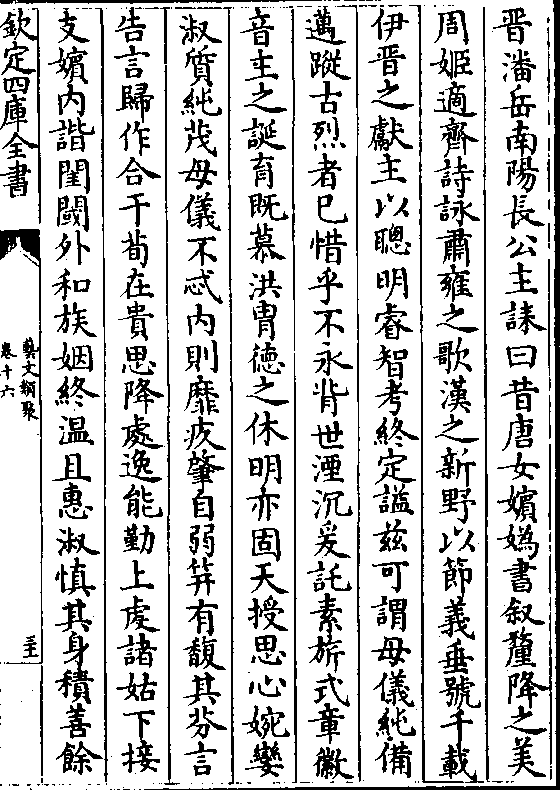 晉潘岳南陽長公主誄曰昔唐女嬪媯書叙釐降之美
周姬適齊詩詠肅雍之歌漢之新野以節義垂號千載
伊晉之獻主以聰明睿智考終定謚兹可謂母儀純備
邁蹤古烈者已惜乎不永背世湮沉爰託素旂式章徽
音主之誕育既慕洪胄德之休明亦固天授思心婉孌
淑質純茂母儀不忒内則靡疚肇自弱笄有馥其芬言
告言歸作合于荀在貴思降處逸能勤上虔諸姑下接
支嬪内諧閨閾外和族姻終温且惠淑慎其身積善餘
欽定四庫全書
藝文類聚
卷十六
三十